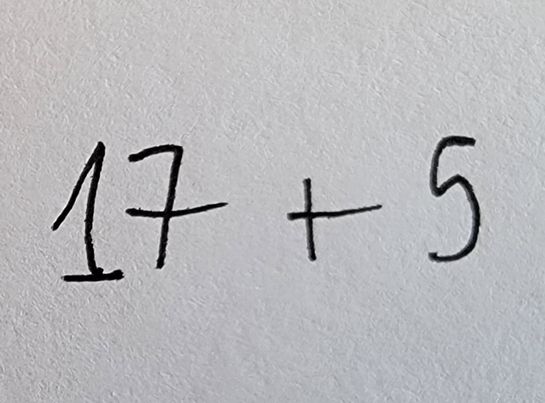 17 + 5